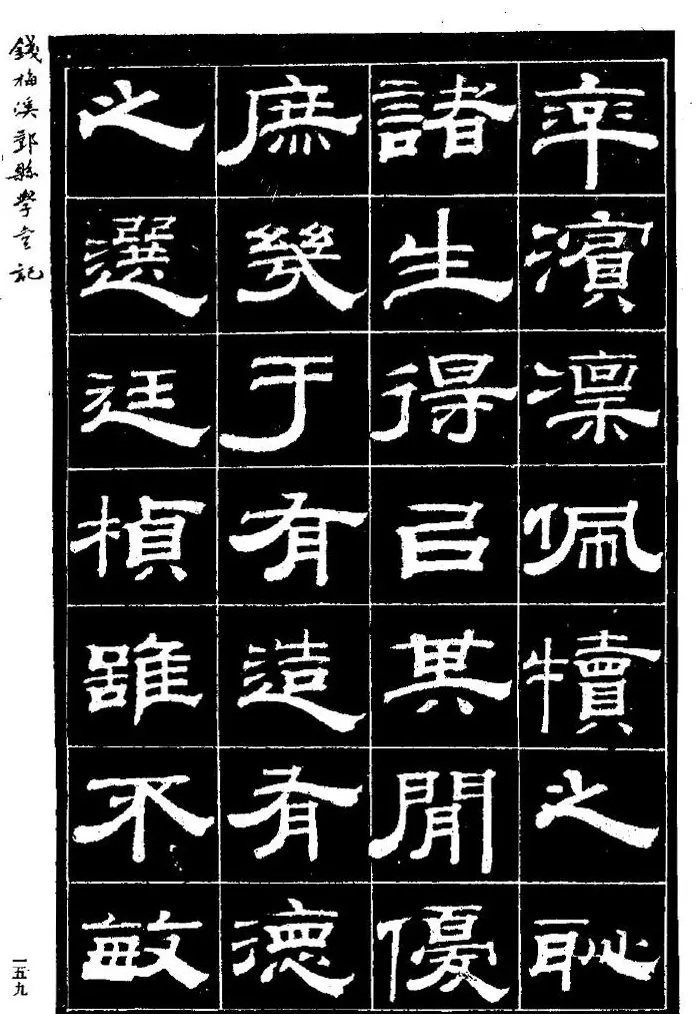 率濱凜佩犢之恥
諸生得㠯其閒優
庶幾于有造有德
之選廷楨雖不敏
錢梅溪鄞縣學宮記
一五九